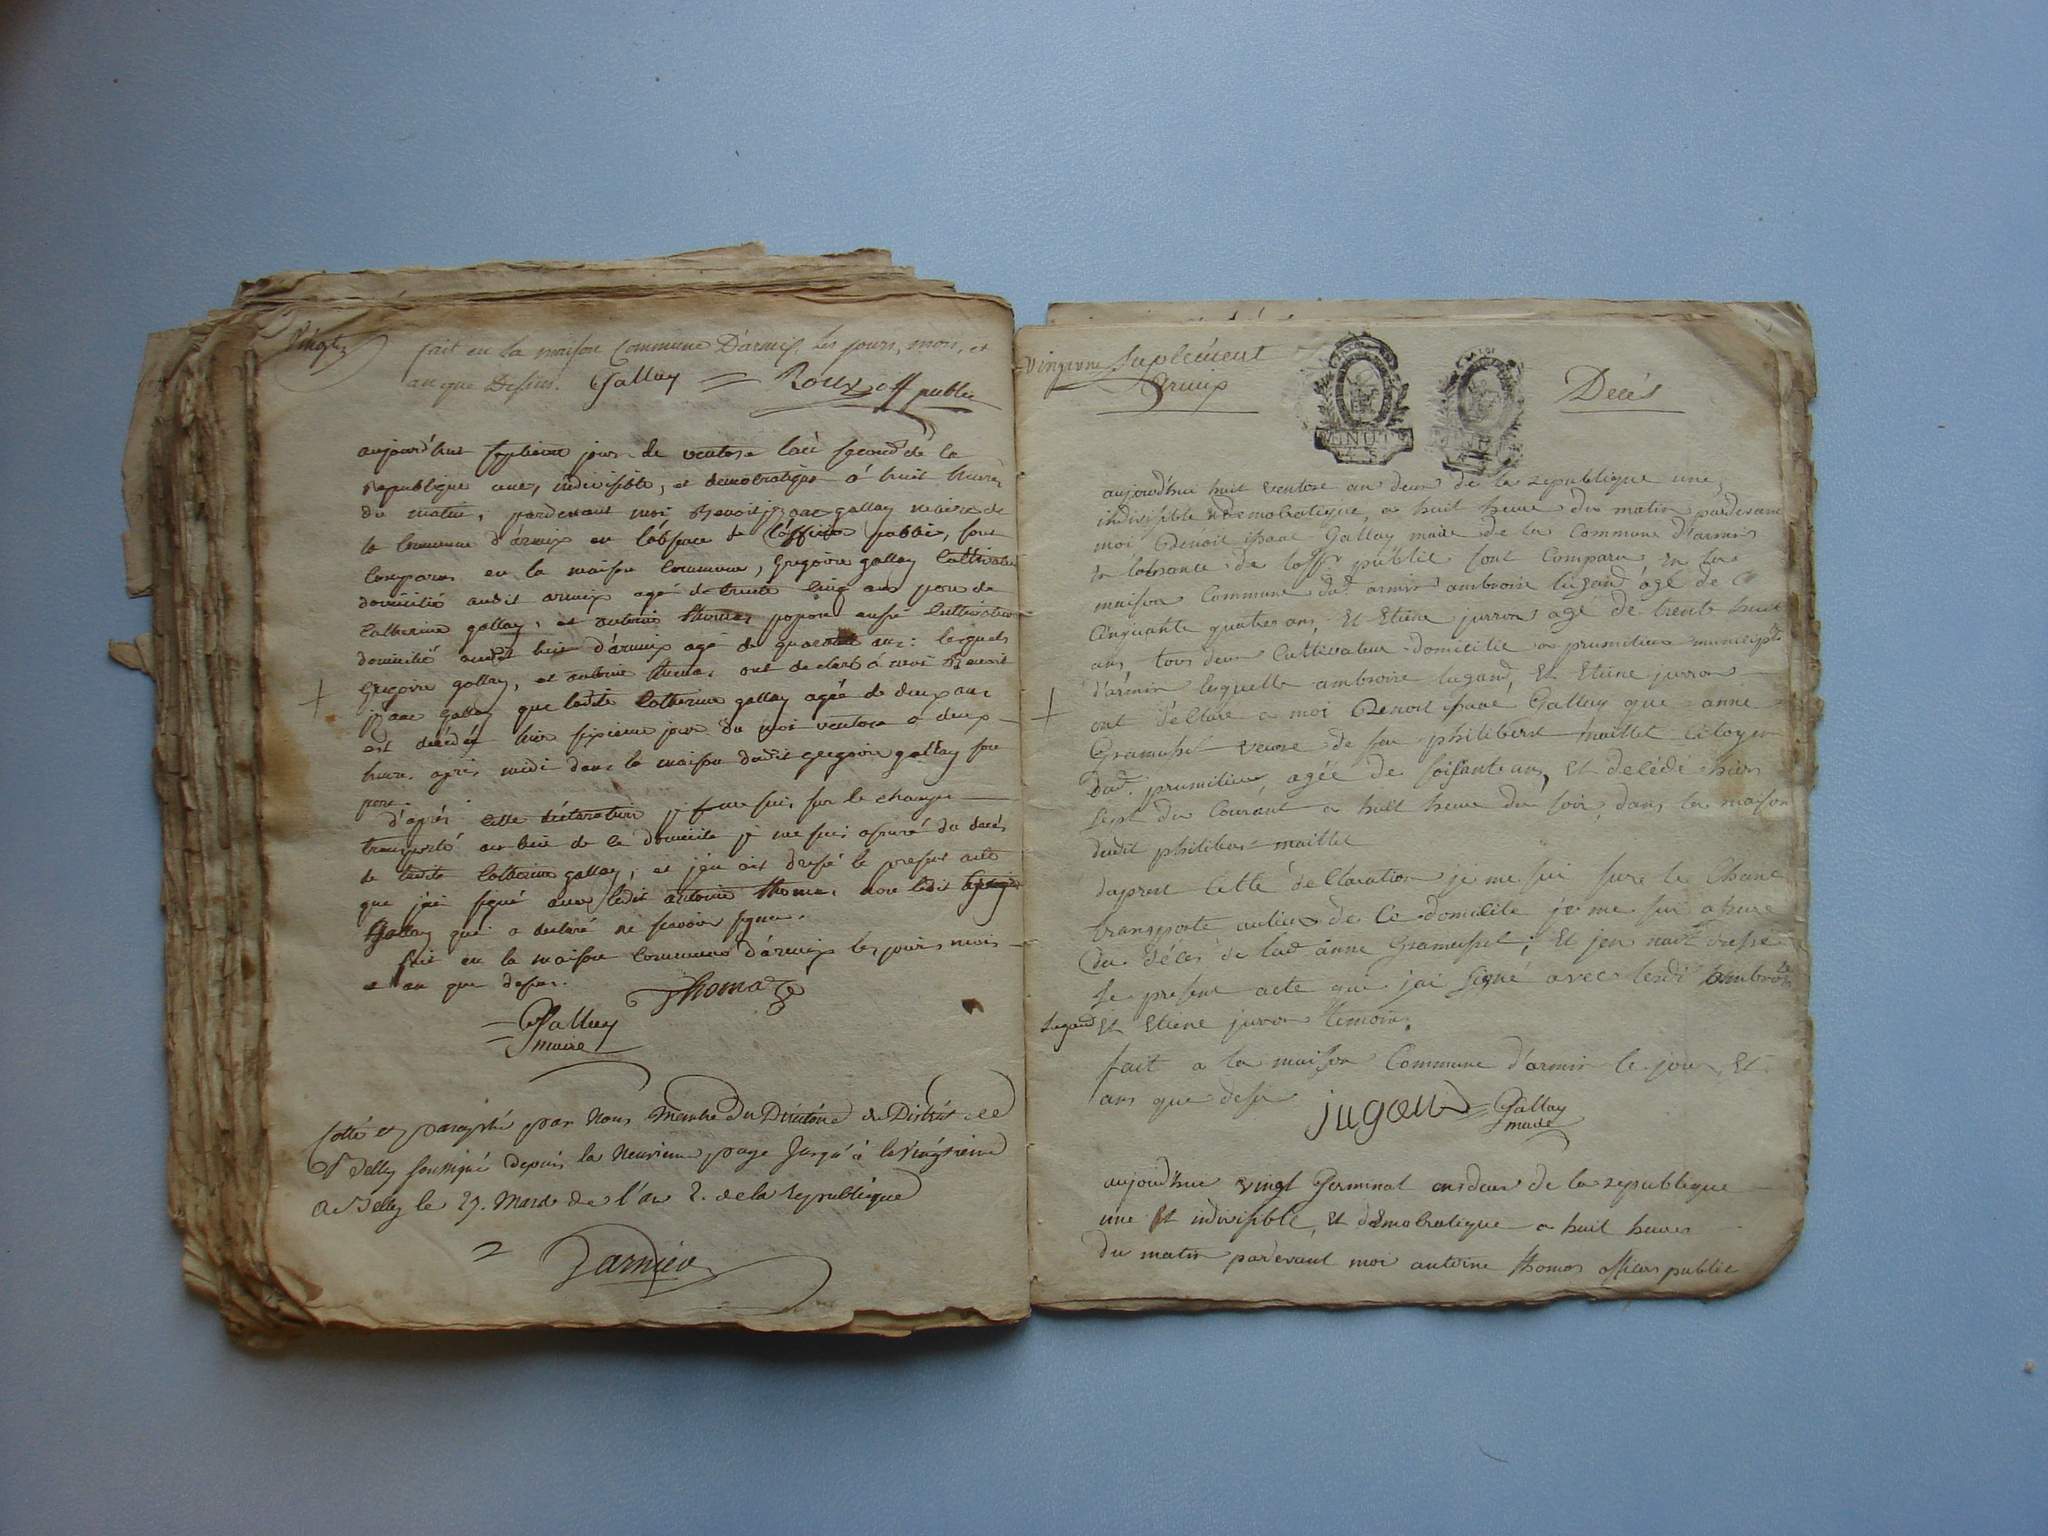 Vingt
fait en la maison Commune D'armix les jours, mois, et
an que Dessus. Gallay = Roux off public
aujourd'huy septieme jour de ventose l'an second de la
republique une, indivisible, et democratique à huit heures
du matin, pardevant moi Benoit jzaac gallay maire de
la Commune d'armix en l'absence de l'officier public, sont
Comparus en la maison Commune, Gregoire gallay Cultivateur
domicilié audit armix agé de trente cinq ans pere de
Catherine gallay, et antoine thomas aussi Cultivateur
domicilié audit lieu d'armix agé de quarente ans: lesquels
Gregoire gallay, et antoine thomas ont declaré à moi Benoit
jzaac gallay que ladite Catherine gallay agée de deux ans
est decedée hier sixieme jour du moi ventose a deux
heures après midi dans la maison dudit gregoire gallay son
pere.
d'après cette déclaration je me suis sur le champ
transporté au lieu de ce domicile je me suis assuré du decès
de ladite Catherine gallay, et j'en ais dressé le present acte
que j'ai signé avec ledit antoine thomas, non ledit Gregoire
Gallay qui a declaré ne scavoir signer.
fait en la maison Commune d'armix les jours mois
et an que dessus. Thomas
Gallay
maire
Cotté et paraphé par Nous Membre du Directoire de District de
Belley soussigné depuis la Neuvieme page Jusqu'à la Vingtieme
a Belley le 27. Mars de l'an 2. de la republique
=
Vingtune Suplement
Armix
Decés
aujourd'hui huit ventose an deux de la republique une,
indivisible et democratique, a huit heure du matin pardevant
moi Benoit isaac Gallay maire de la Commune d'armix
en labsance de loffr publie sont Comparu en la
maison Commune dud. armix ambroise lugand agé de
Cinquante quatre ans, Et Etiene jurron agé de trente huit
ans, tous deux Cultivateur domicilie a prumilieu municip.té
d'armix lesquelle ambroise lugand, Et Etiene jurron
ont déClaré a moi Benoit isaac Gallay que anne
Gramusset veuve de feu philibert maillet Citoyen
dud. prumilieu, agée de soisante ans, Et decédé hier
sept du Courant a huit heure du soir, dans la maison
dudit philibert maillet
dapret Cette déClaration je me sui sure le Chane
transporte aulieu de Ce domicile je me sui assure
du déCès de lad anne Gramusset; Et jen nait dressé
le present acte que jai signé avec lesdi Ambroise
lugand Et Etiene jurron témoin.
fait a la maison Commune d'armix le jour, Et
ans que desu lugand = Gallay
maire
aujourdhui vingt Germinal an deux de la republique
une Et indivisible, Et démocratique a huit heures
du matin pardevant moi antoine thomas officier public